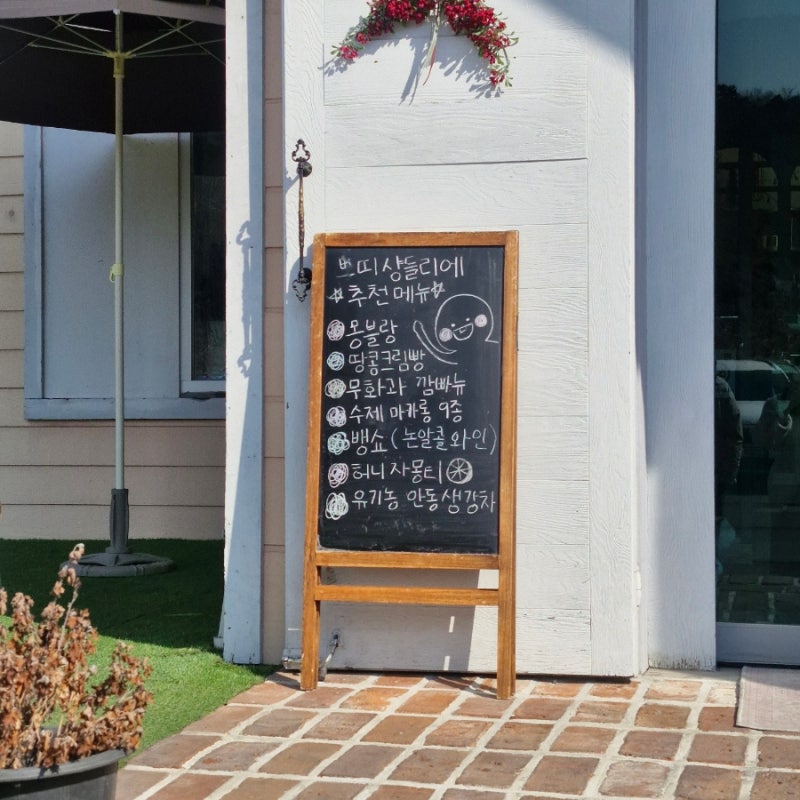 쁘띠샹들리에
추천메뉴
몽블랑
땅콩크림빵
무화과 깜빠뉴
수제 마카롱 9종
뱅쇼 (논알콜와인)
허니자몽티
유기농 안동생강차